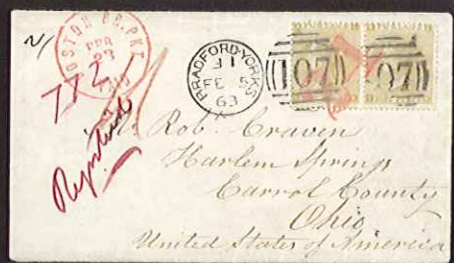 BOSTON BR. PKT
23
PAID
BRADFORD-YORKS
FE
63
107
107
772
Registered
Mr. Rob. Craven
Harlem Springs
Carrol County
Ohio
United States of America